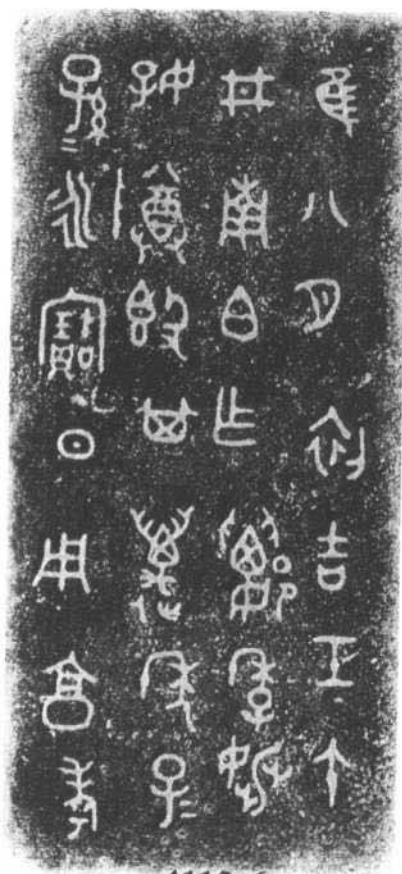 隹八月初吉壬午
井南白乍季姚
好𣪘其萬年子=
孫=永寶日用亯孝